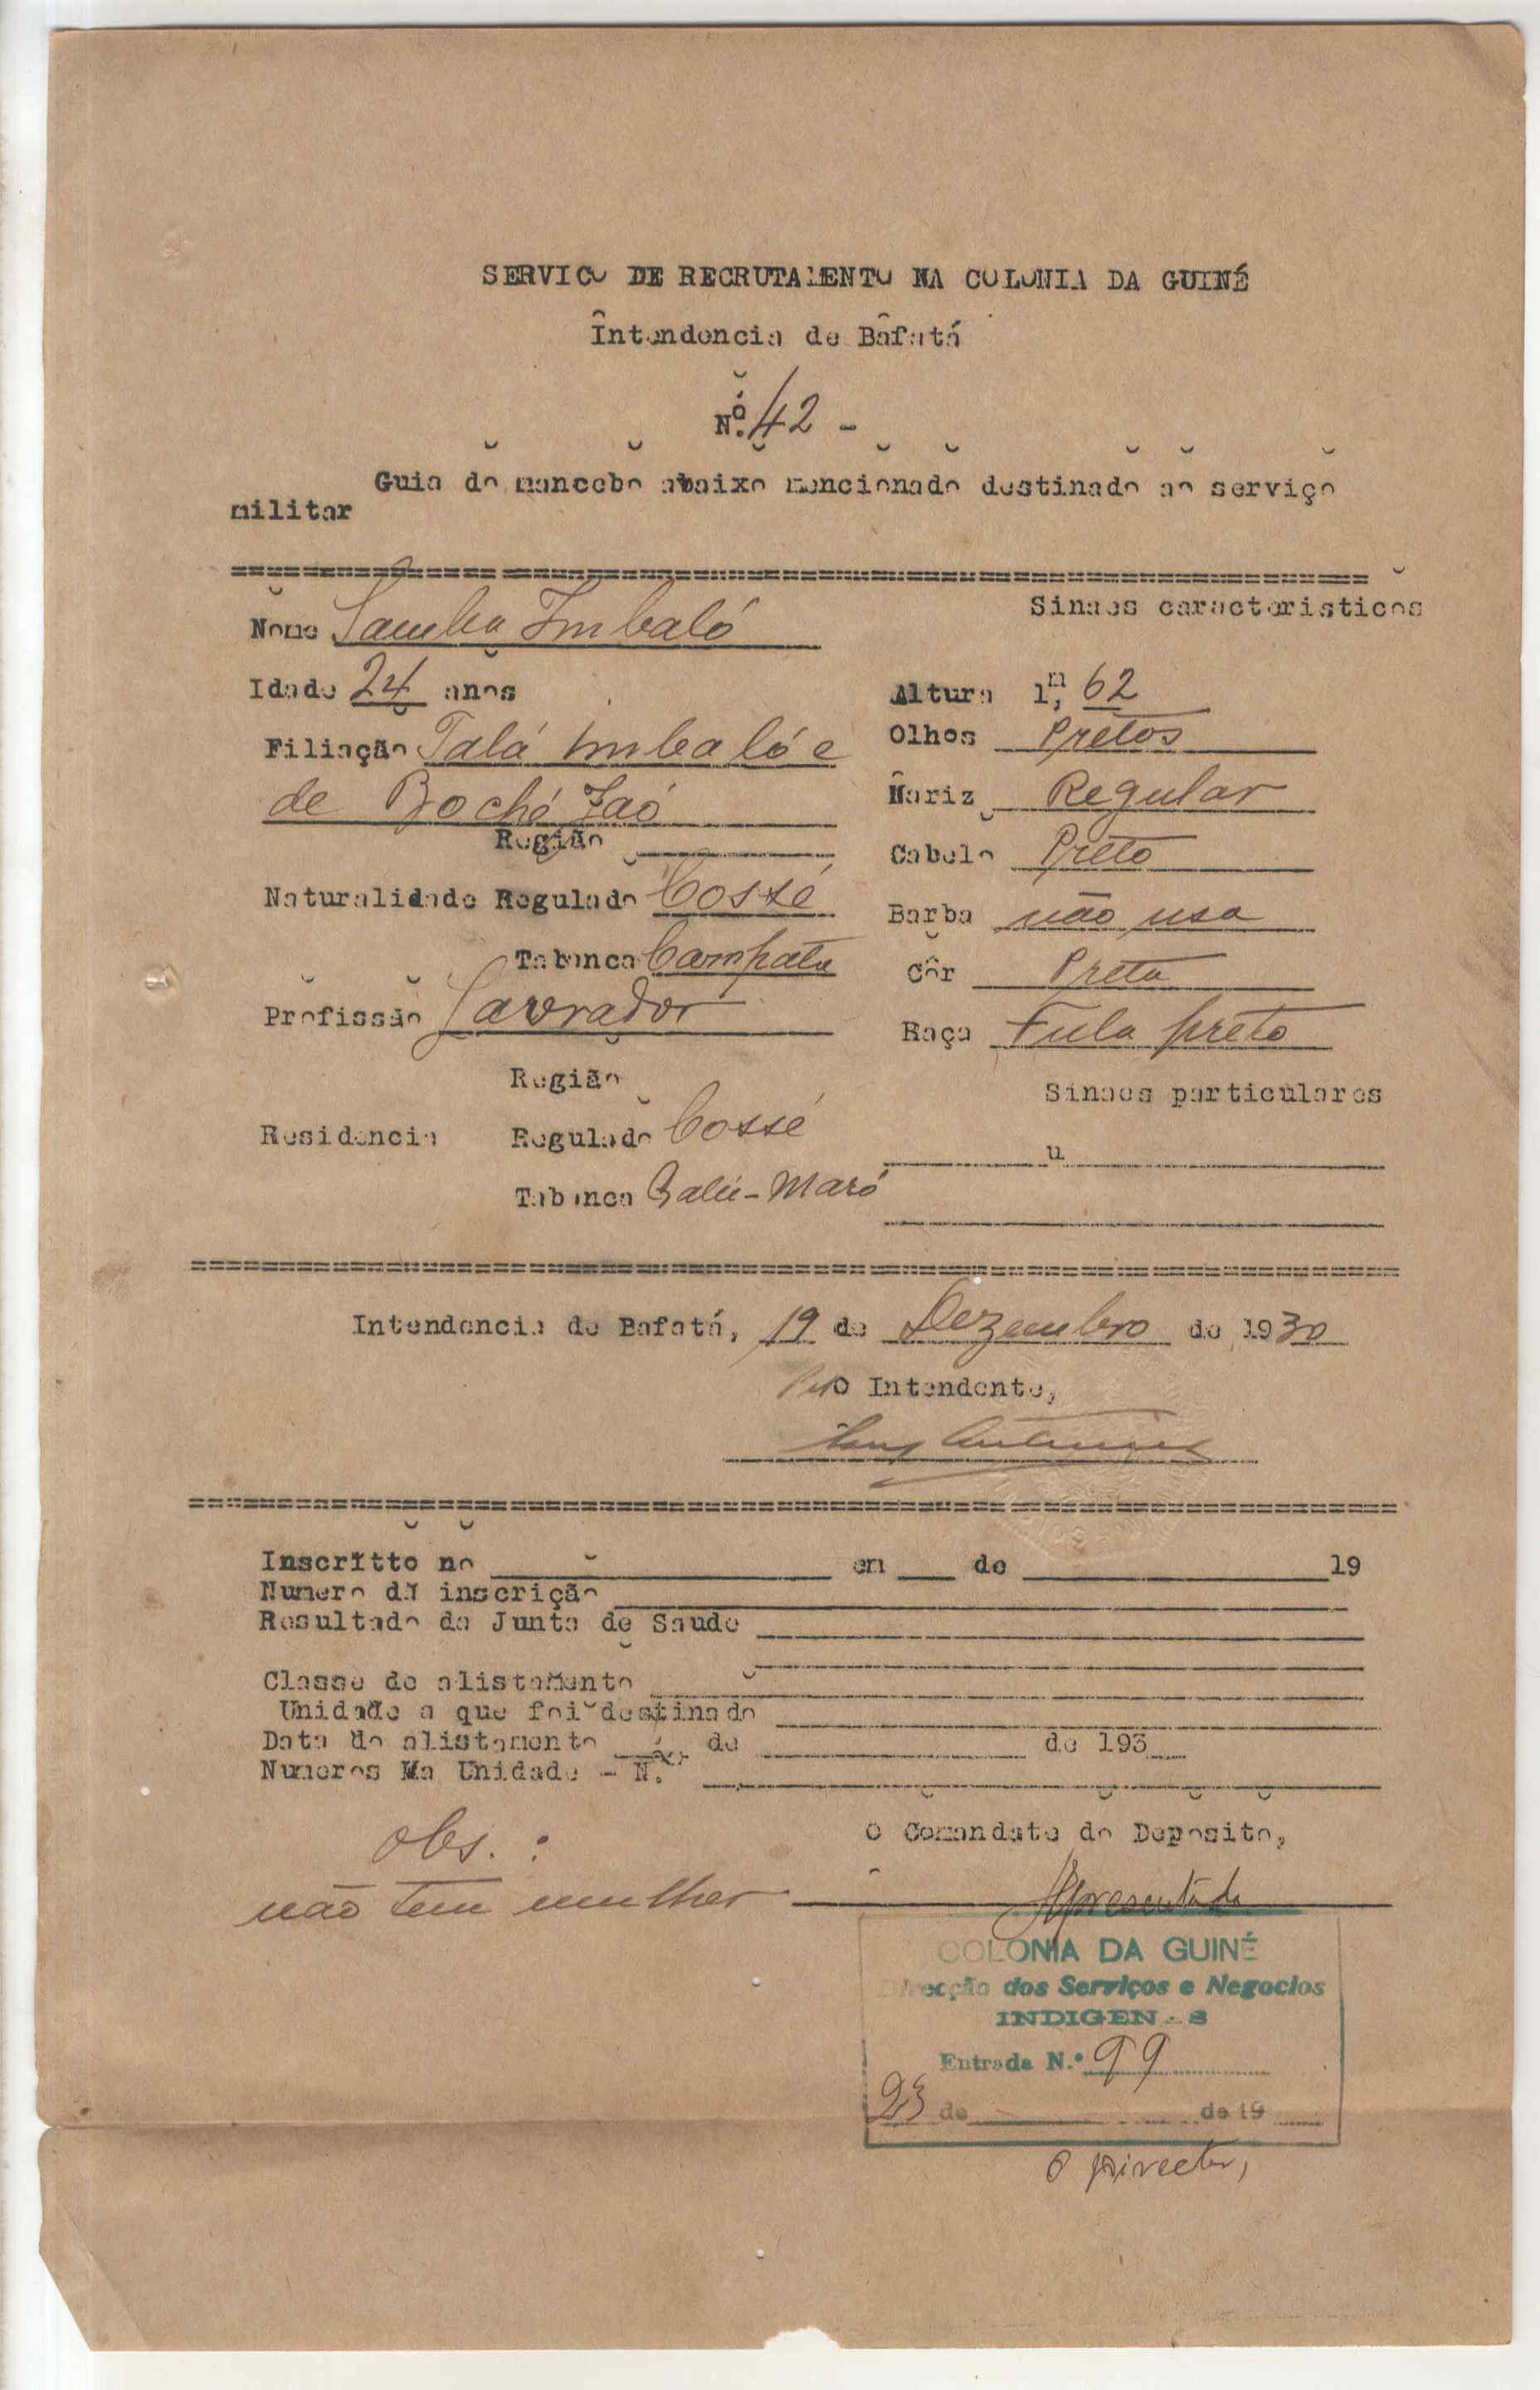 SERVICO DE RECRUTAMENTO NA COLONIA DA GUINÉ
Intendencia de Bafatá
Nº. 42 -
Guia do mancebo abaixo mencionado destinado ao serviço
militar
Nome Samba Imbaló
Sinaes caracteristicos
Idade 24 anos
Altura 1,m 62
Filiação Talá Imbaló e
Olhos Pretos
de Boché Jaó
Nariz Regular
Região
Cabelo Preto
Naturalidade Regulado Cossé
Barba não usa
Tabanca Campata
Côr Preta
Profissão Lavrador
Raça Fula preto
Região
Sinaes particulares
Residencia Regulado Cossé
u
Tabanca Galú-Maró
Intendencia de Bafatá, 19 de Dezembro de 1930
Pelo Intendente,
Inscritto no em de 19
Numero da inscrição
Resultado da Junta de Saude
Classe de alistamento
Unidade a que foi destinado
Data do alistamento de de 193
Numeros Na Unidade - N.
obs. :
O Comandate do Deposito,
não tem mulher
Apresentado
COLONIA DA GUINÉ
Direcção dos Serviços e Negocios
INDIGENAS
Entrada N.º 99
23 de de 19
O Director,